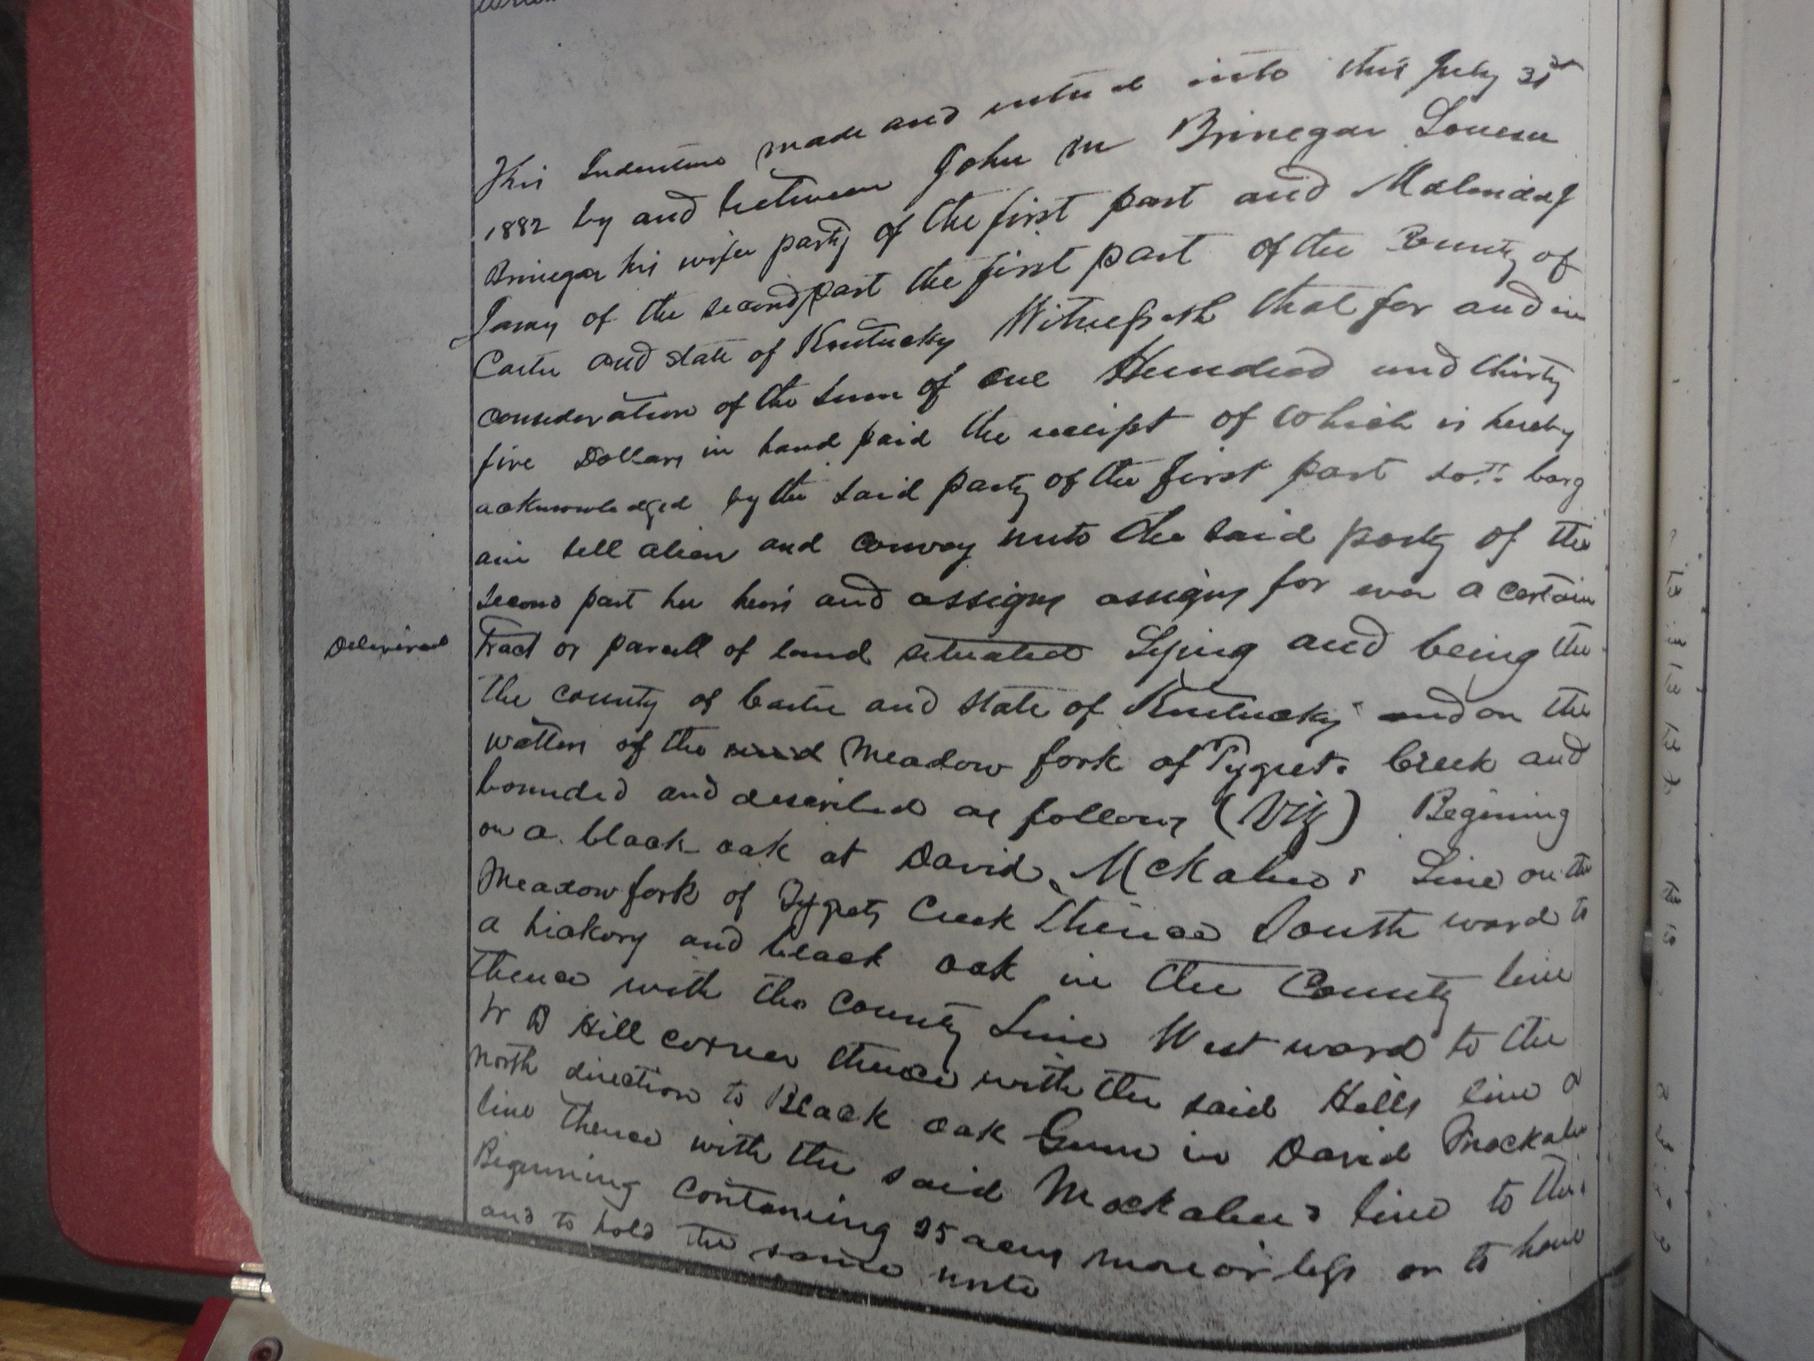 This Indenture made and entered into this July 31st
1882 by and between John M Brinegar Louesa
Brinegar his wife party of the first part and Malinda J
Jamy of the second part the first part of the County of
Carter and state of Kentucky Witnesseth that for and in
consideration of the sum of one Hundred and thirty
five Dollars in hand paid the receipt of which is hereby
acknowledged by the said party of the first part do barg
ain sell alien and convey unto the said party of the
second part her heirs and assigns assigns for ever a certain
Delivered
Tract or parcell of land situated Lying and being the
the county of Carter and state of Kentucky and on the
watters of the Meadow fork of Tygrets Creek and
bounded and described as follows (Viz) Begining
on a black oak at David McKabees Line on the
Meadow fork of Tygrets Creek Thence South ward to
a hickory and black oak in the County line
thence with the county Line West ward to the
W D Hill corner thence with the said Hills line a
north direction to Black oak Gum in David Mackabee
line thence with the said Mackabees line to the
Begining containing 25 acres more or less or to have
and to hold the same unto